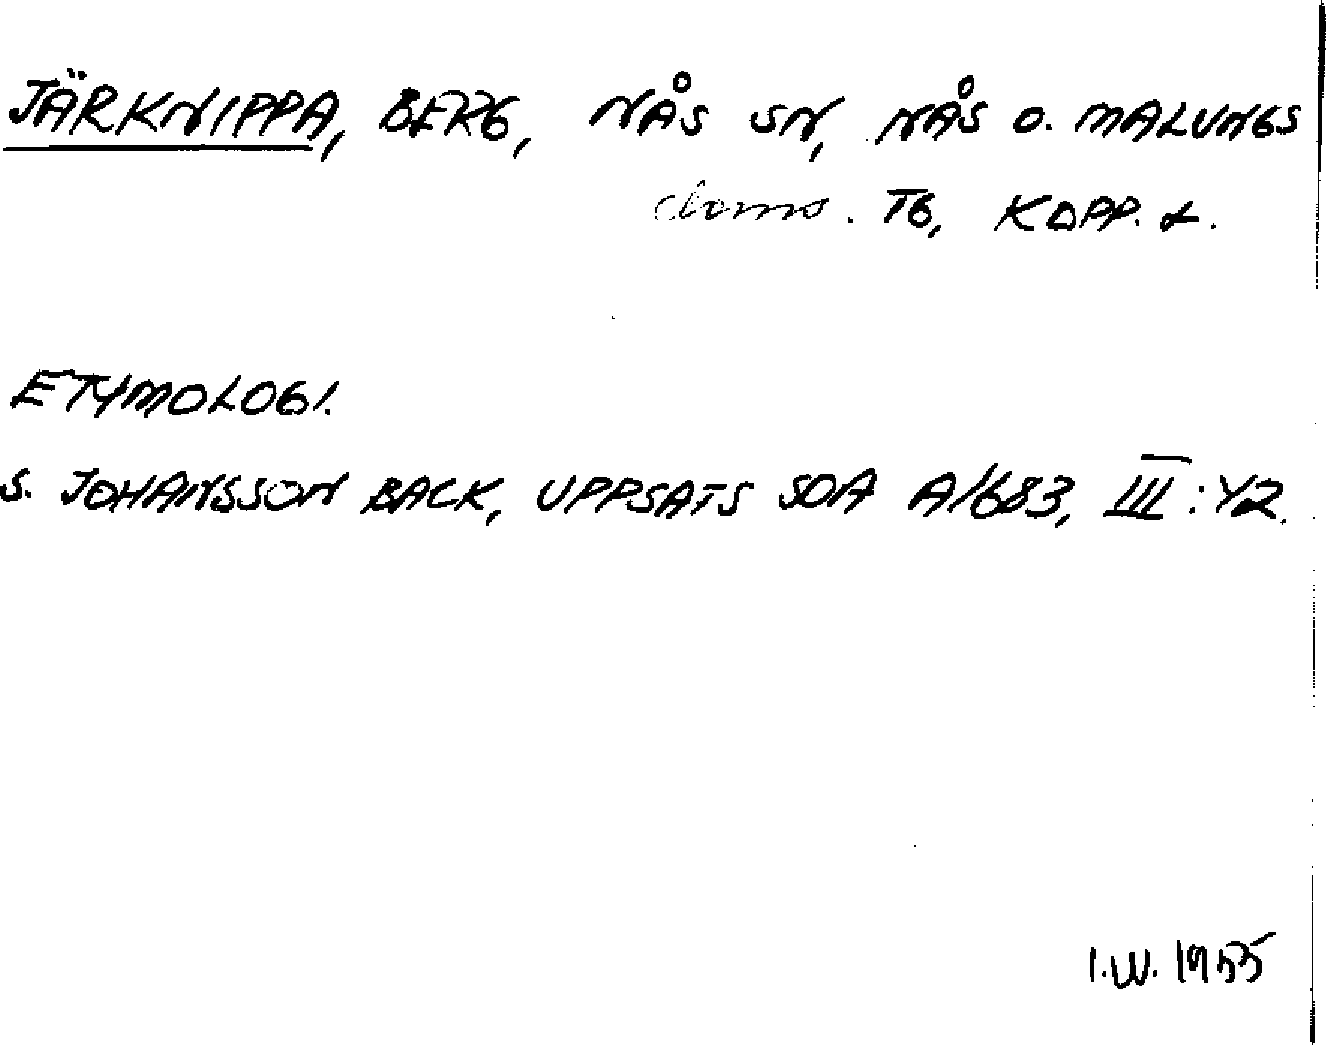 JÄRKNIPPA, BERG, NÅS SN, NÅS O. MALUNGS
doms. TG, KOPP. L.
ETYMOLOGI.
S. JOHANSSON BACK, UPPSATS SOA A/683, III:Y2.
I.W. 1955